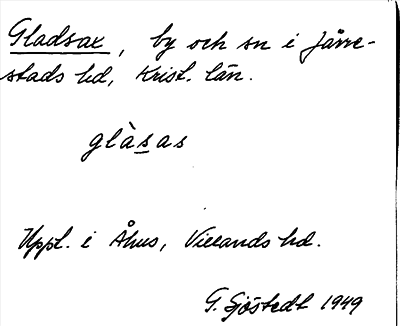 Gladsax, by och sn i Järre-
stads hd, Krist. län.
glàsas
Uppl. i Åhus, Villands hd.
G. Sjöstedt 1949